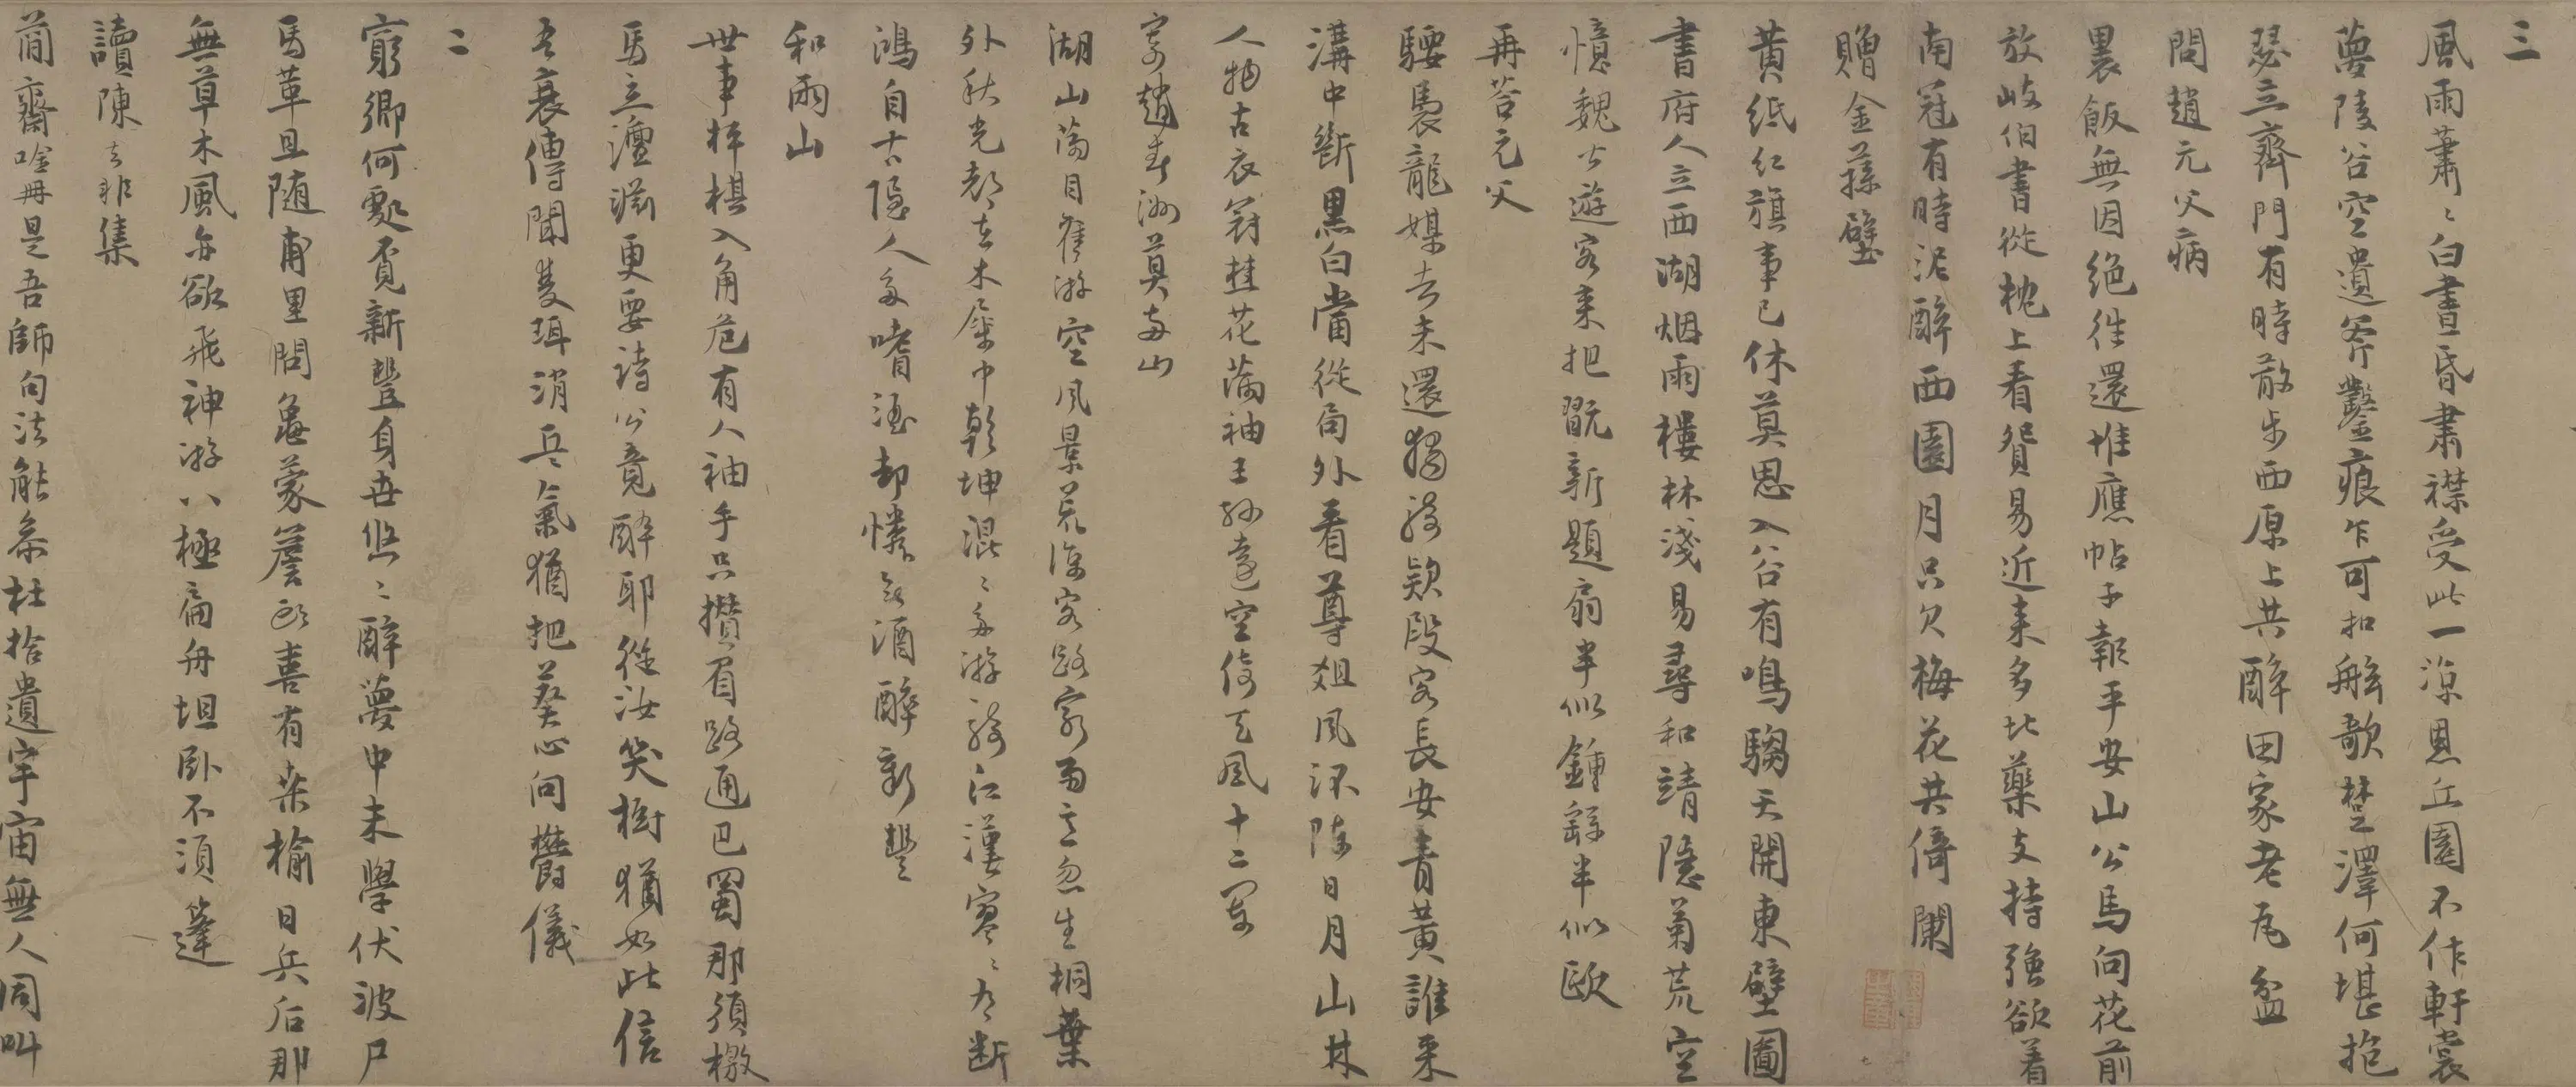 三
風雨蕭々白晝昏肅襟受此一涼恩丘園不作軒裳
夢陵谷空遺斧鑿痕乍可扣舷歌楚澤何堪抱
瑟立齊門有時散步西原上共醉田家老瓦盆
問趙元父病
裹飯無因絕往還惟應帖子報平安山公馬向花前
放岐伯書從枕上看貲易近來多比藥支持強欲着
南冠有時泥醉西園月只欠梅花共倚闌
贈金蓀壁
黃紙紅旗事已休莫思入谷有鳴騶天開東壁圖
書府人立西湖烟雨樓林淺易尋和靖隱菊荒空
憶魏公遊客來把翫新題扇半似鍾繇半似歐
再荅元父
騕褭龍媒去未還獨騎款段客長安青黃誰采
溝中斷黑白當從局外看尊俎風流陪日月山林
人物古衣冠桂花滿袖王孫遠空倚天風十二闌
寄趙春洲莫南山
湖山滿目舊游空風景荒涼客路窮雨意忽生桐葉
外秋光都在木犀中乾坤混々多游騎江漢寥々有斷
鴻自古隱人多嗜酒却憐無酒醉新豐
和雨山
世事枰棋入角危有人袖手只攢眉路通巴蜀那須檄
馬立瀍澗更要詩公竟醉耶從汝笑樹猶如此信
吾衰傳聞雙珥消兵氣猶把葵心向鬱儀
二
窮卿何處覓新豐身世悠々醉夢中未學伏波尸
馬革且隨甫里問龜蒙詹郎喜有桑榆日兵后那
無草木風亦欲飛神游八極扁舟坦臥不須篷
讀陳去非集
簡齋吟冊是吾師句法能參杜拾遺宇宙無人同叫